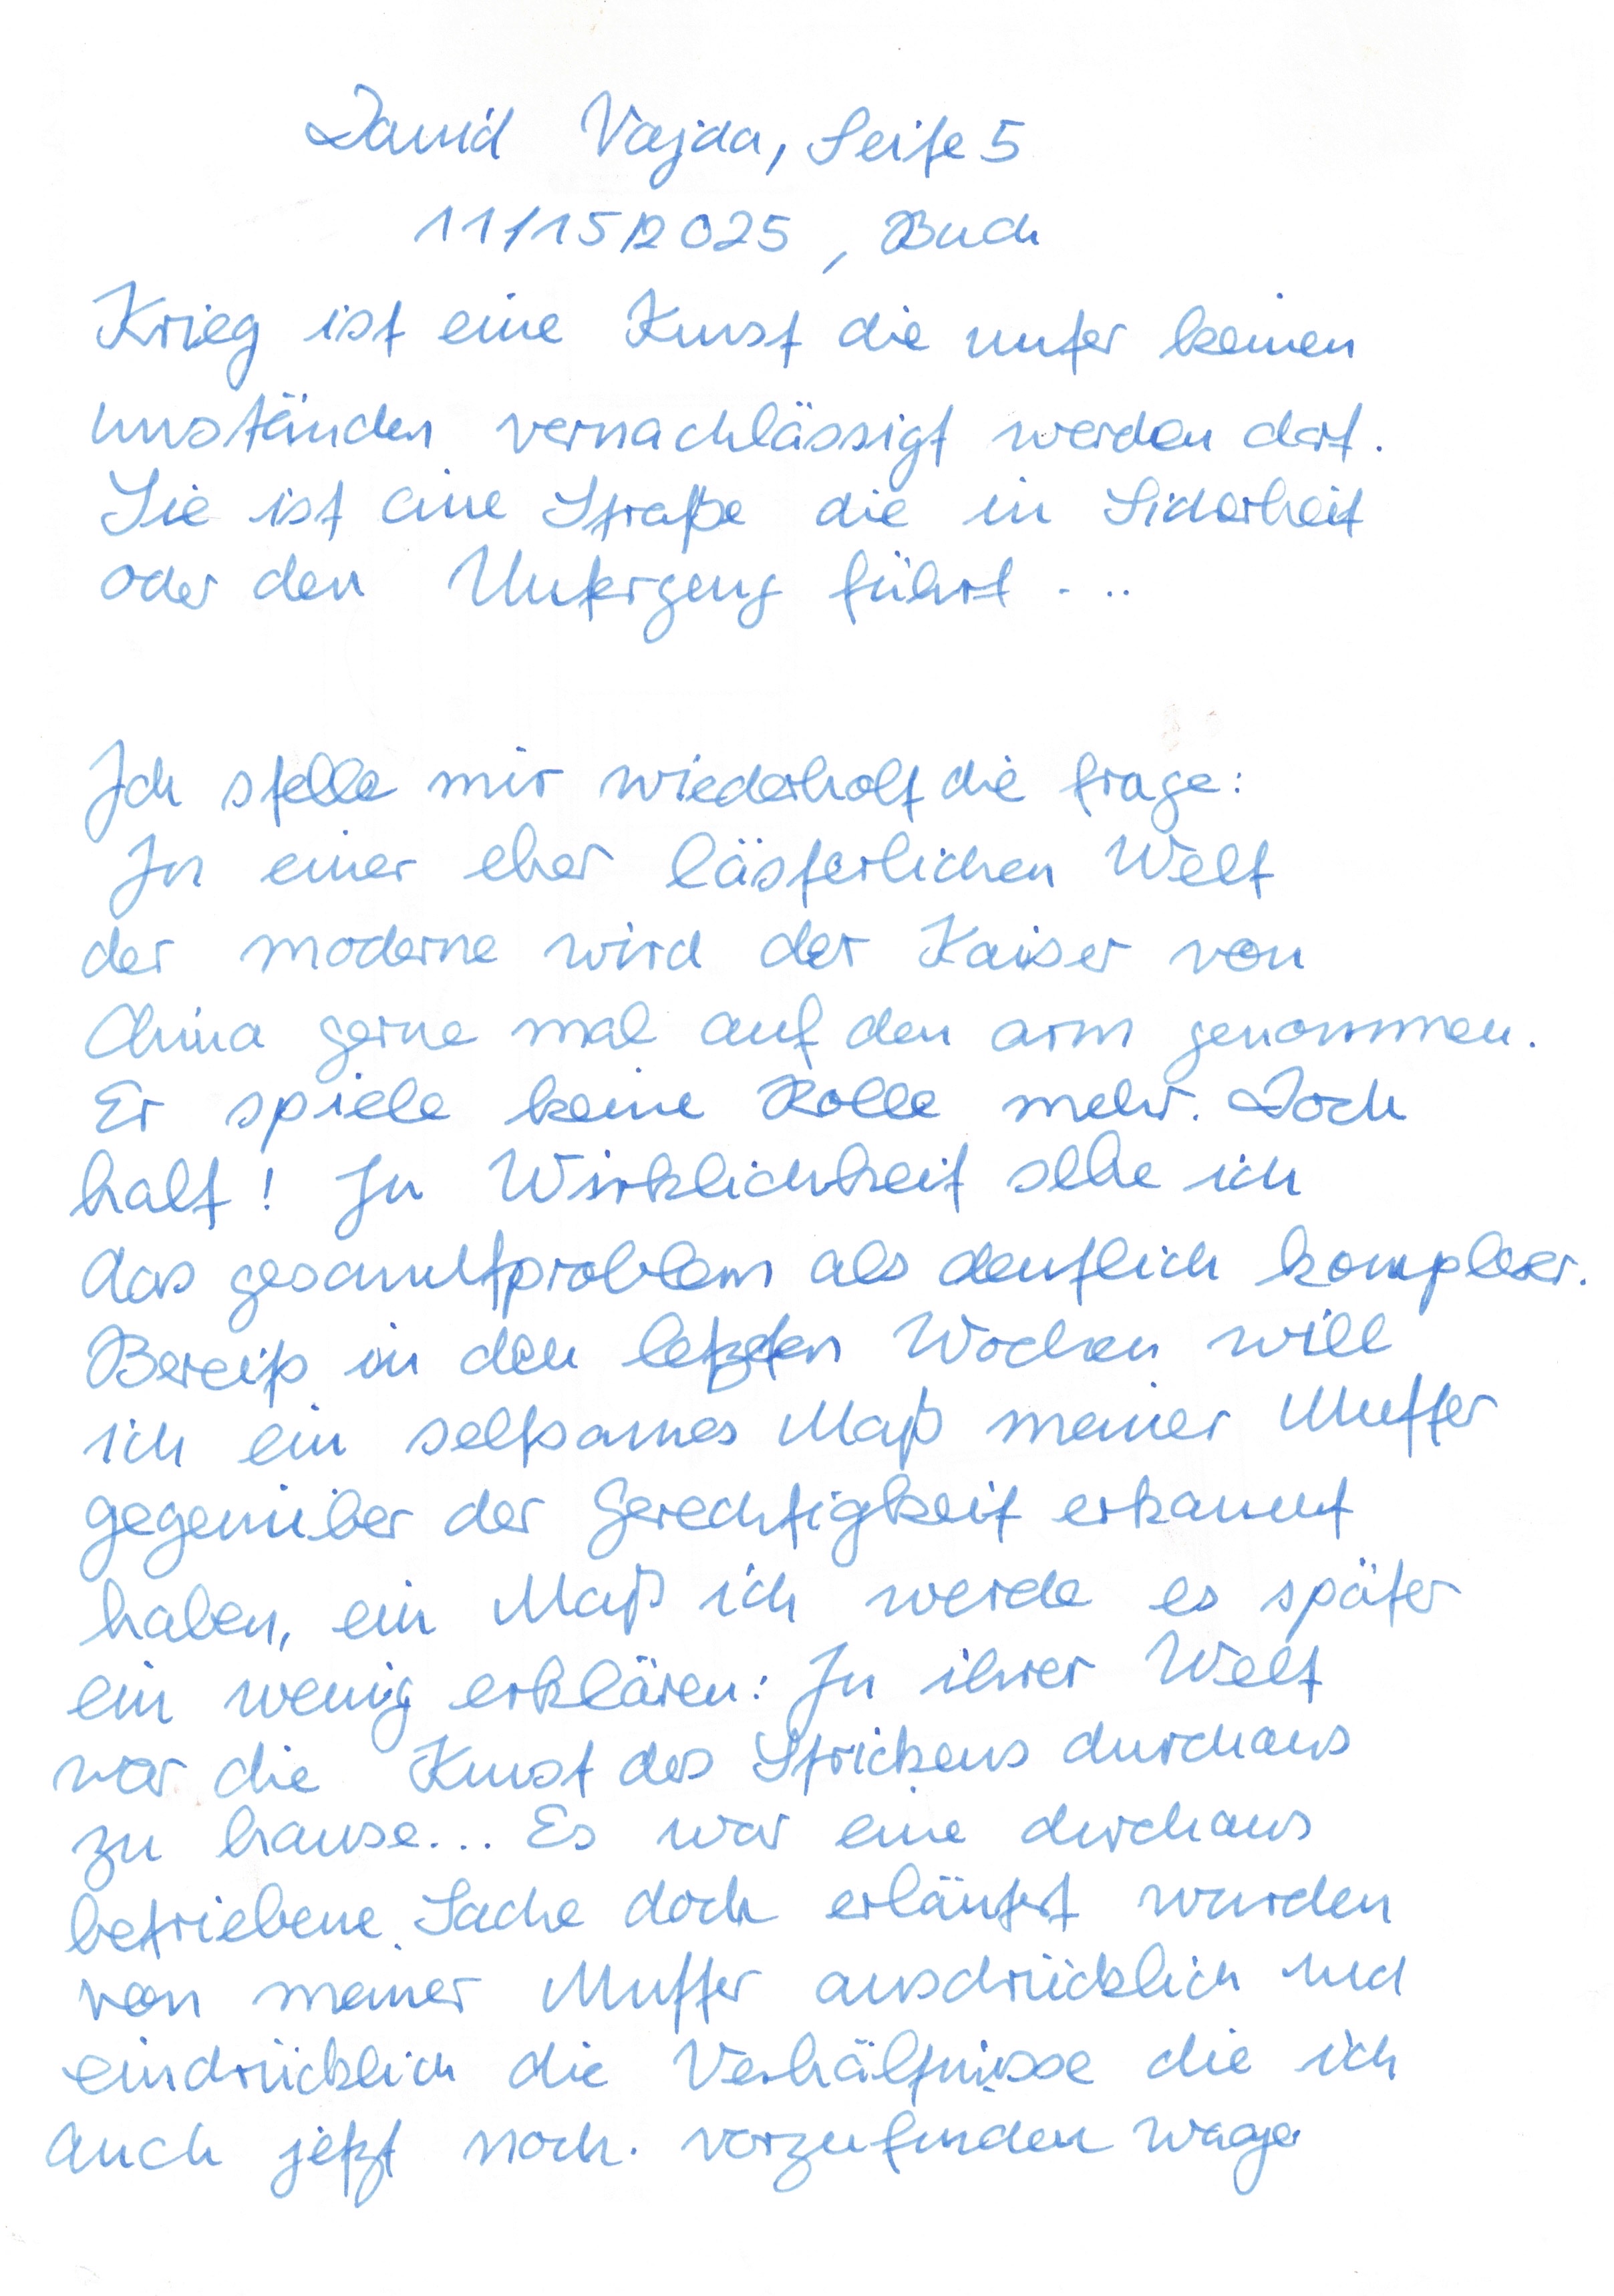 David Vajda, Seite 5
11/15/2025, Buch
Krieg ist eine Kunst die unter keinen
umständen vernachlässigt werden darf.
Sie ist eine Straße die in Sicherheit
oder den Untergang führt ...
Ich stelle mir wiederholt die frage:
In einer eher lästerlichen Welt
der moderne wird der Kaiser von
China gerne mal auf den arm genommen.
Er spiele keine Rolle mehr. Doch
halt! In Wirklichkeit sehe ich
das gesamtproblem als deutlich komplexer.
Bereits in den letzten Wochen will
ich ein seltsames Maß meiner Mutter
gegenüber der Gerechtigkeit erkannt
haben, ein Maß ich werde es später
ein wenig erklären: In ihrer Welt
war die Kunst des Strickens durchaus
zu hause... Es war eine durchaus
betriebene Sache doch erläutert wurden
von meiner Mutter ausdrücklich und
eindrücklich die Verhältnisse die ich
auch jetzt noch. vorzufinden wage